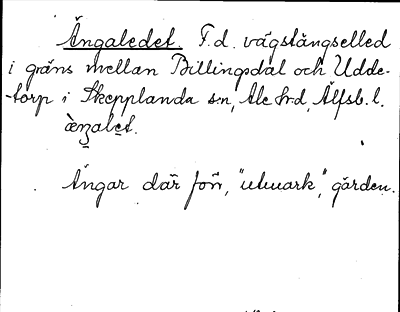 Ängaledet. F.d. vägstångselled
i gräns mellan Billingsdal och Udde-
torp i Skepplanda s:n, Ale h:d, Älfsb. l.
Ängar där förr, "utmark", gärden.